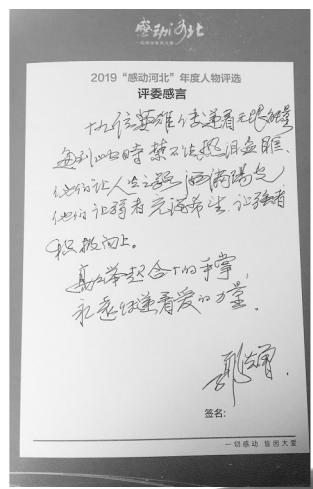 感动河北
2019“感动河北”年度人物评选
评委感言
十九位英雄 传递着无限能量
每到此时 禁不住热泪盈眶
他们让人生之路 洒满阳光
他们让弱者充满希望 让强者
积极向上。
高高举起合十的手掌
永远传递着爱的力量。
签名:
一切感动 皆因大爱